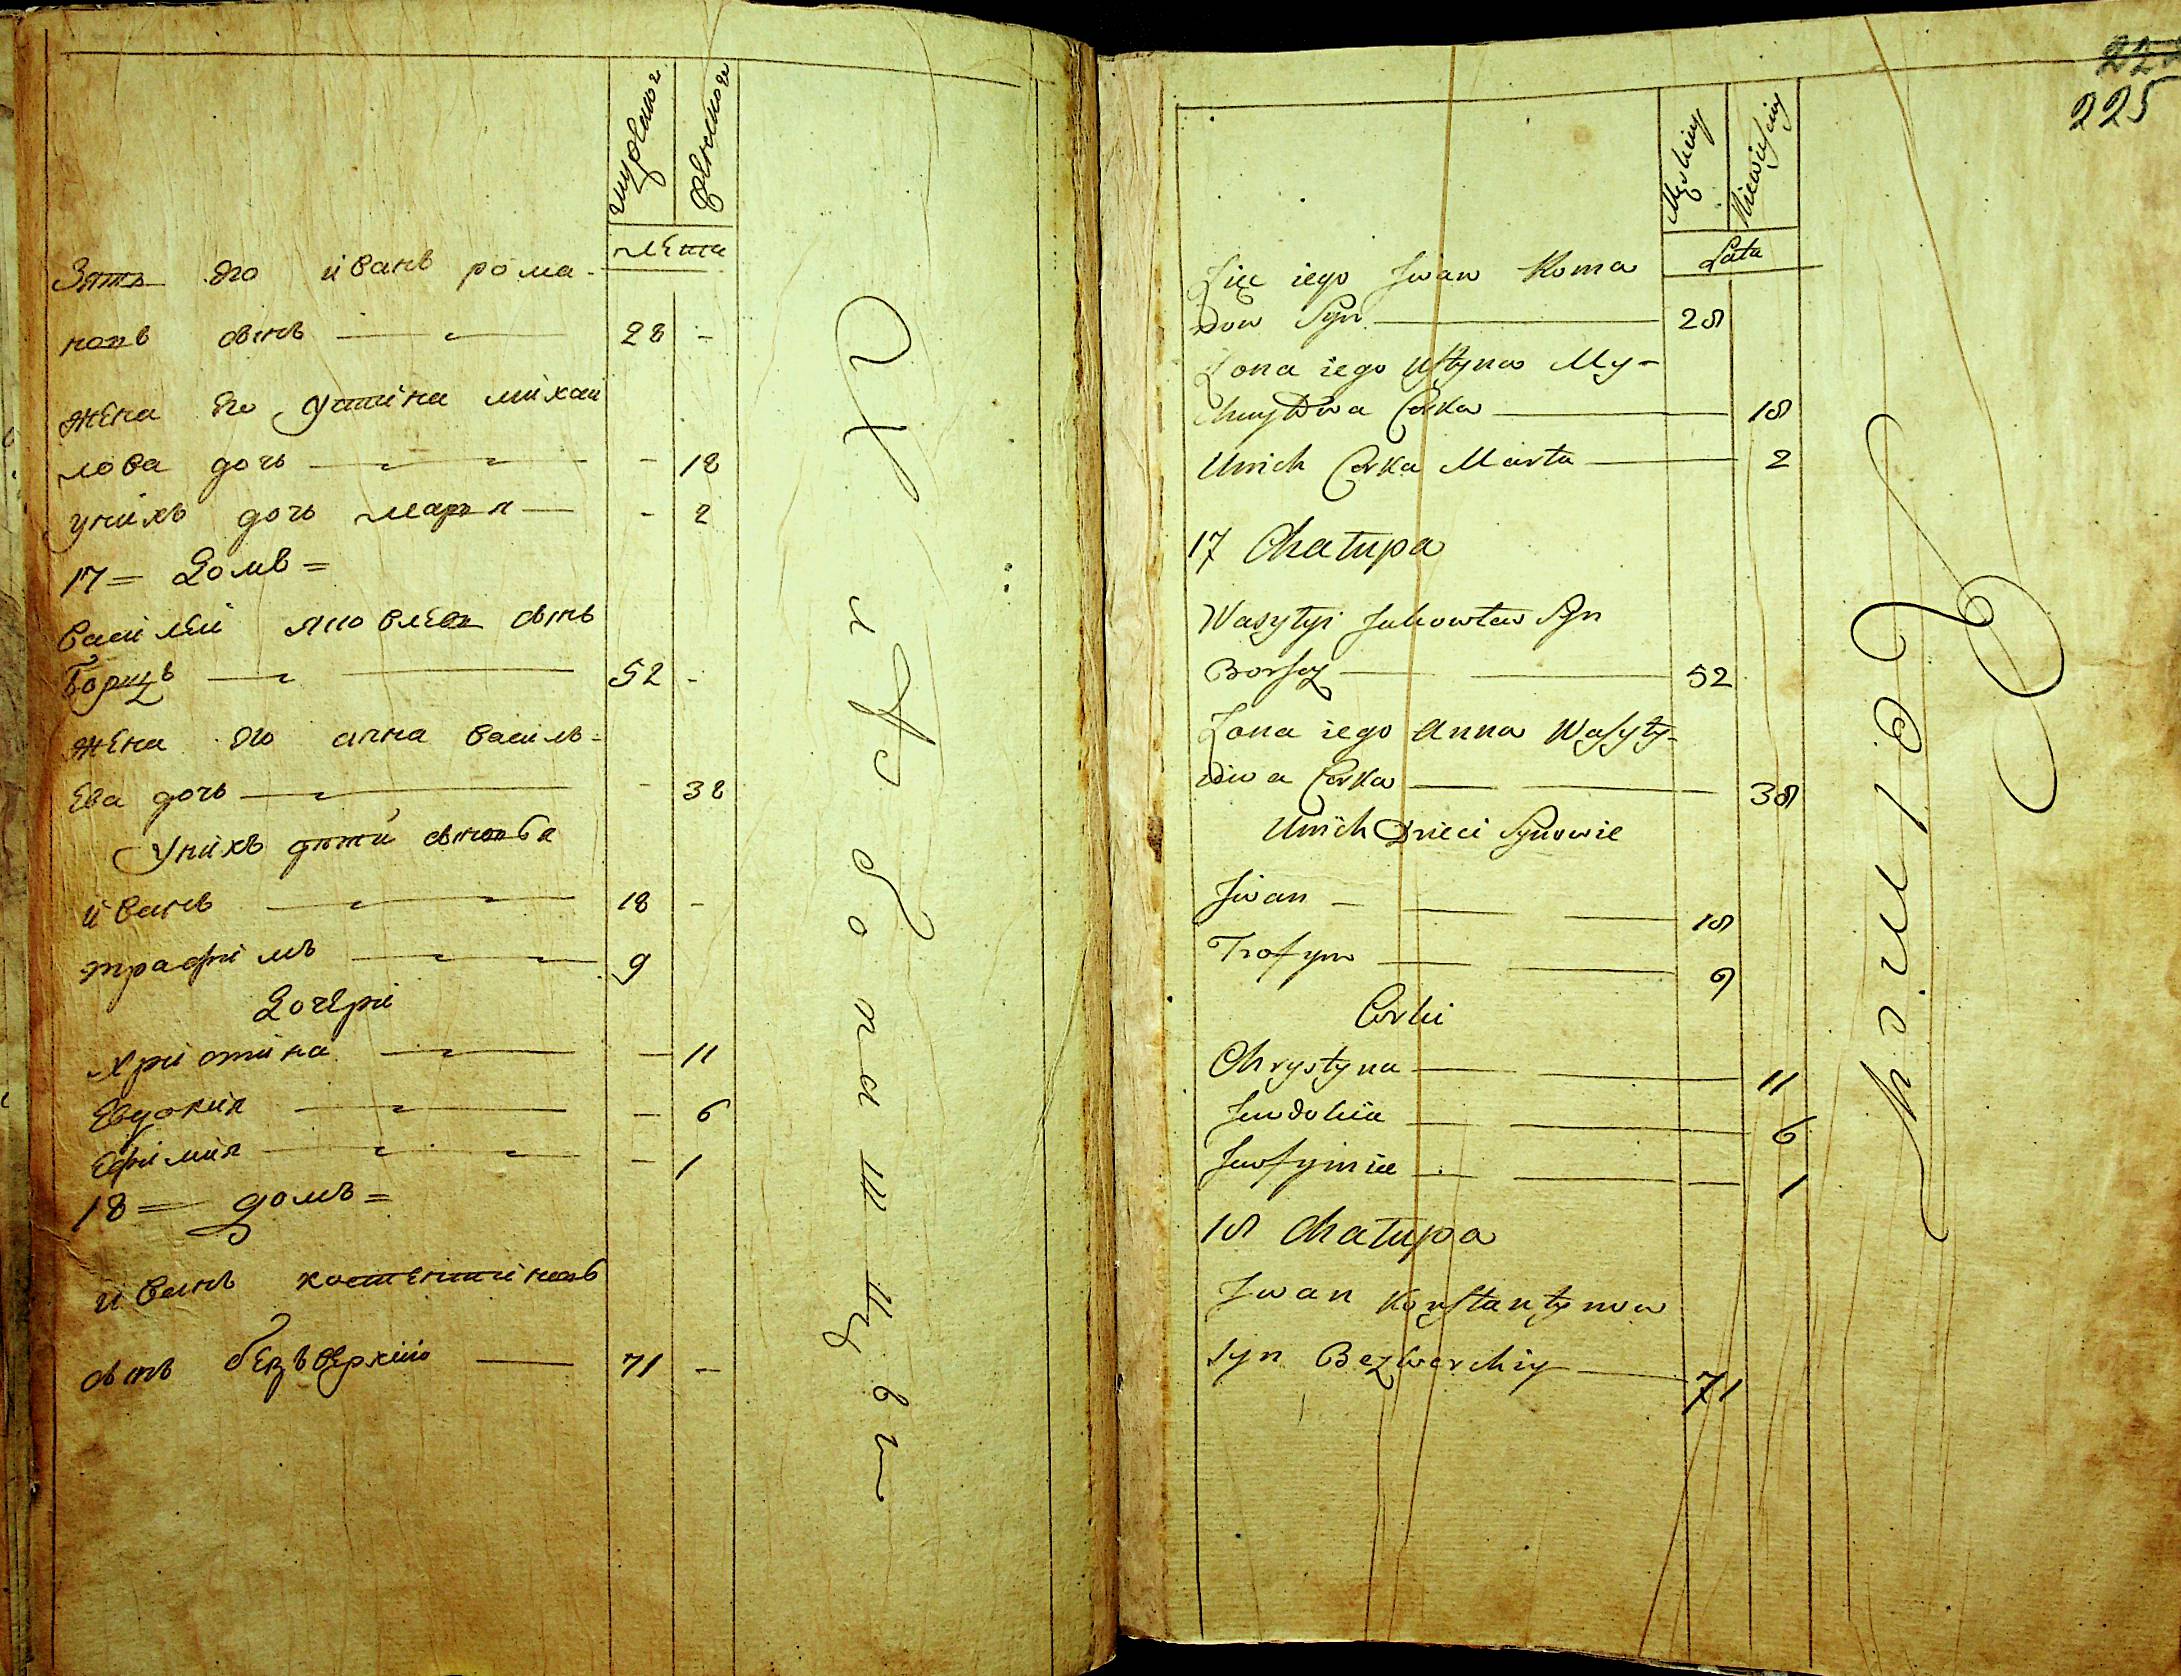 мужеска
женска
лѣта
Зять его иванъ рома-
новъ сынъ 28 -
жена его устина михай
лова дочь - 18
унихъ дочь марья - 2
17 = Домъ =
василей яковлевъ сынъ
Борщъ 52 -
жена его анна василь-
ева дочь - 38
Унихъ дѣти сыновья
иванъ 18 -
трафимъ 9
Дочери
христина - 11
Евдокия - 6
Ефимия - 1
18 = домъ =
иванъ костентиновъ
сынъ безъверхий 71 -
222
225
Męskiey
Niewieściey
Lata
Zięc iego Jwan Roma
now Syn 28
Zona iego Ustyna My-
chayłowa Corka 18
Unich Corka Marta 2
17 Chałupa
Wasylyi Jakowlew Syn
Borszcz 52
Zona iego Anna Wasyly-
iowa Corka 38
Unich Dzieci Synowie
Jwan 18
Trofym 9
Corki
Chrystyna 11
Jewdokia 6
Jewfymia 1
18 Chałupa
Jwan Konstantynow
Syn Bezwerchiy 71